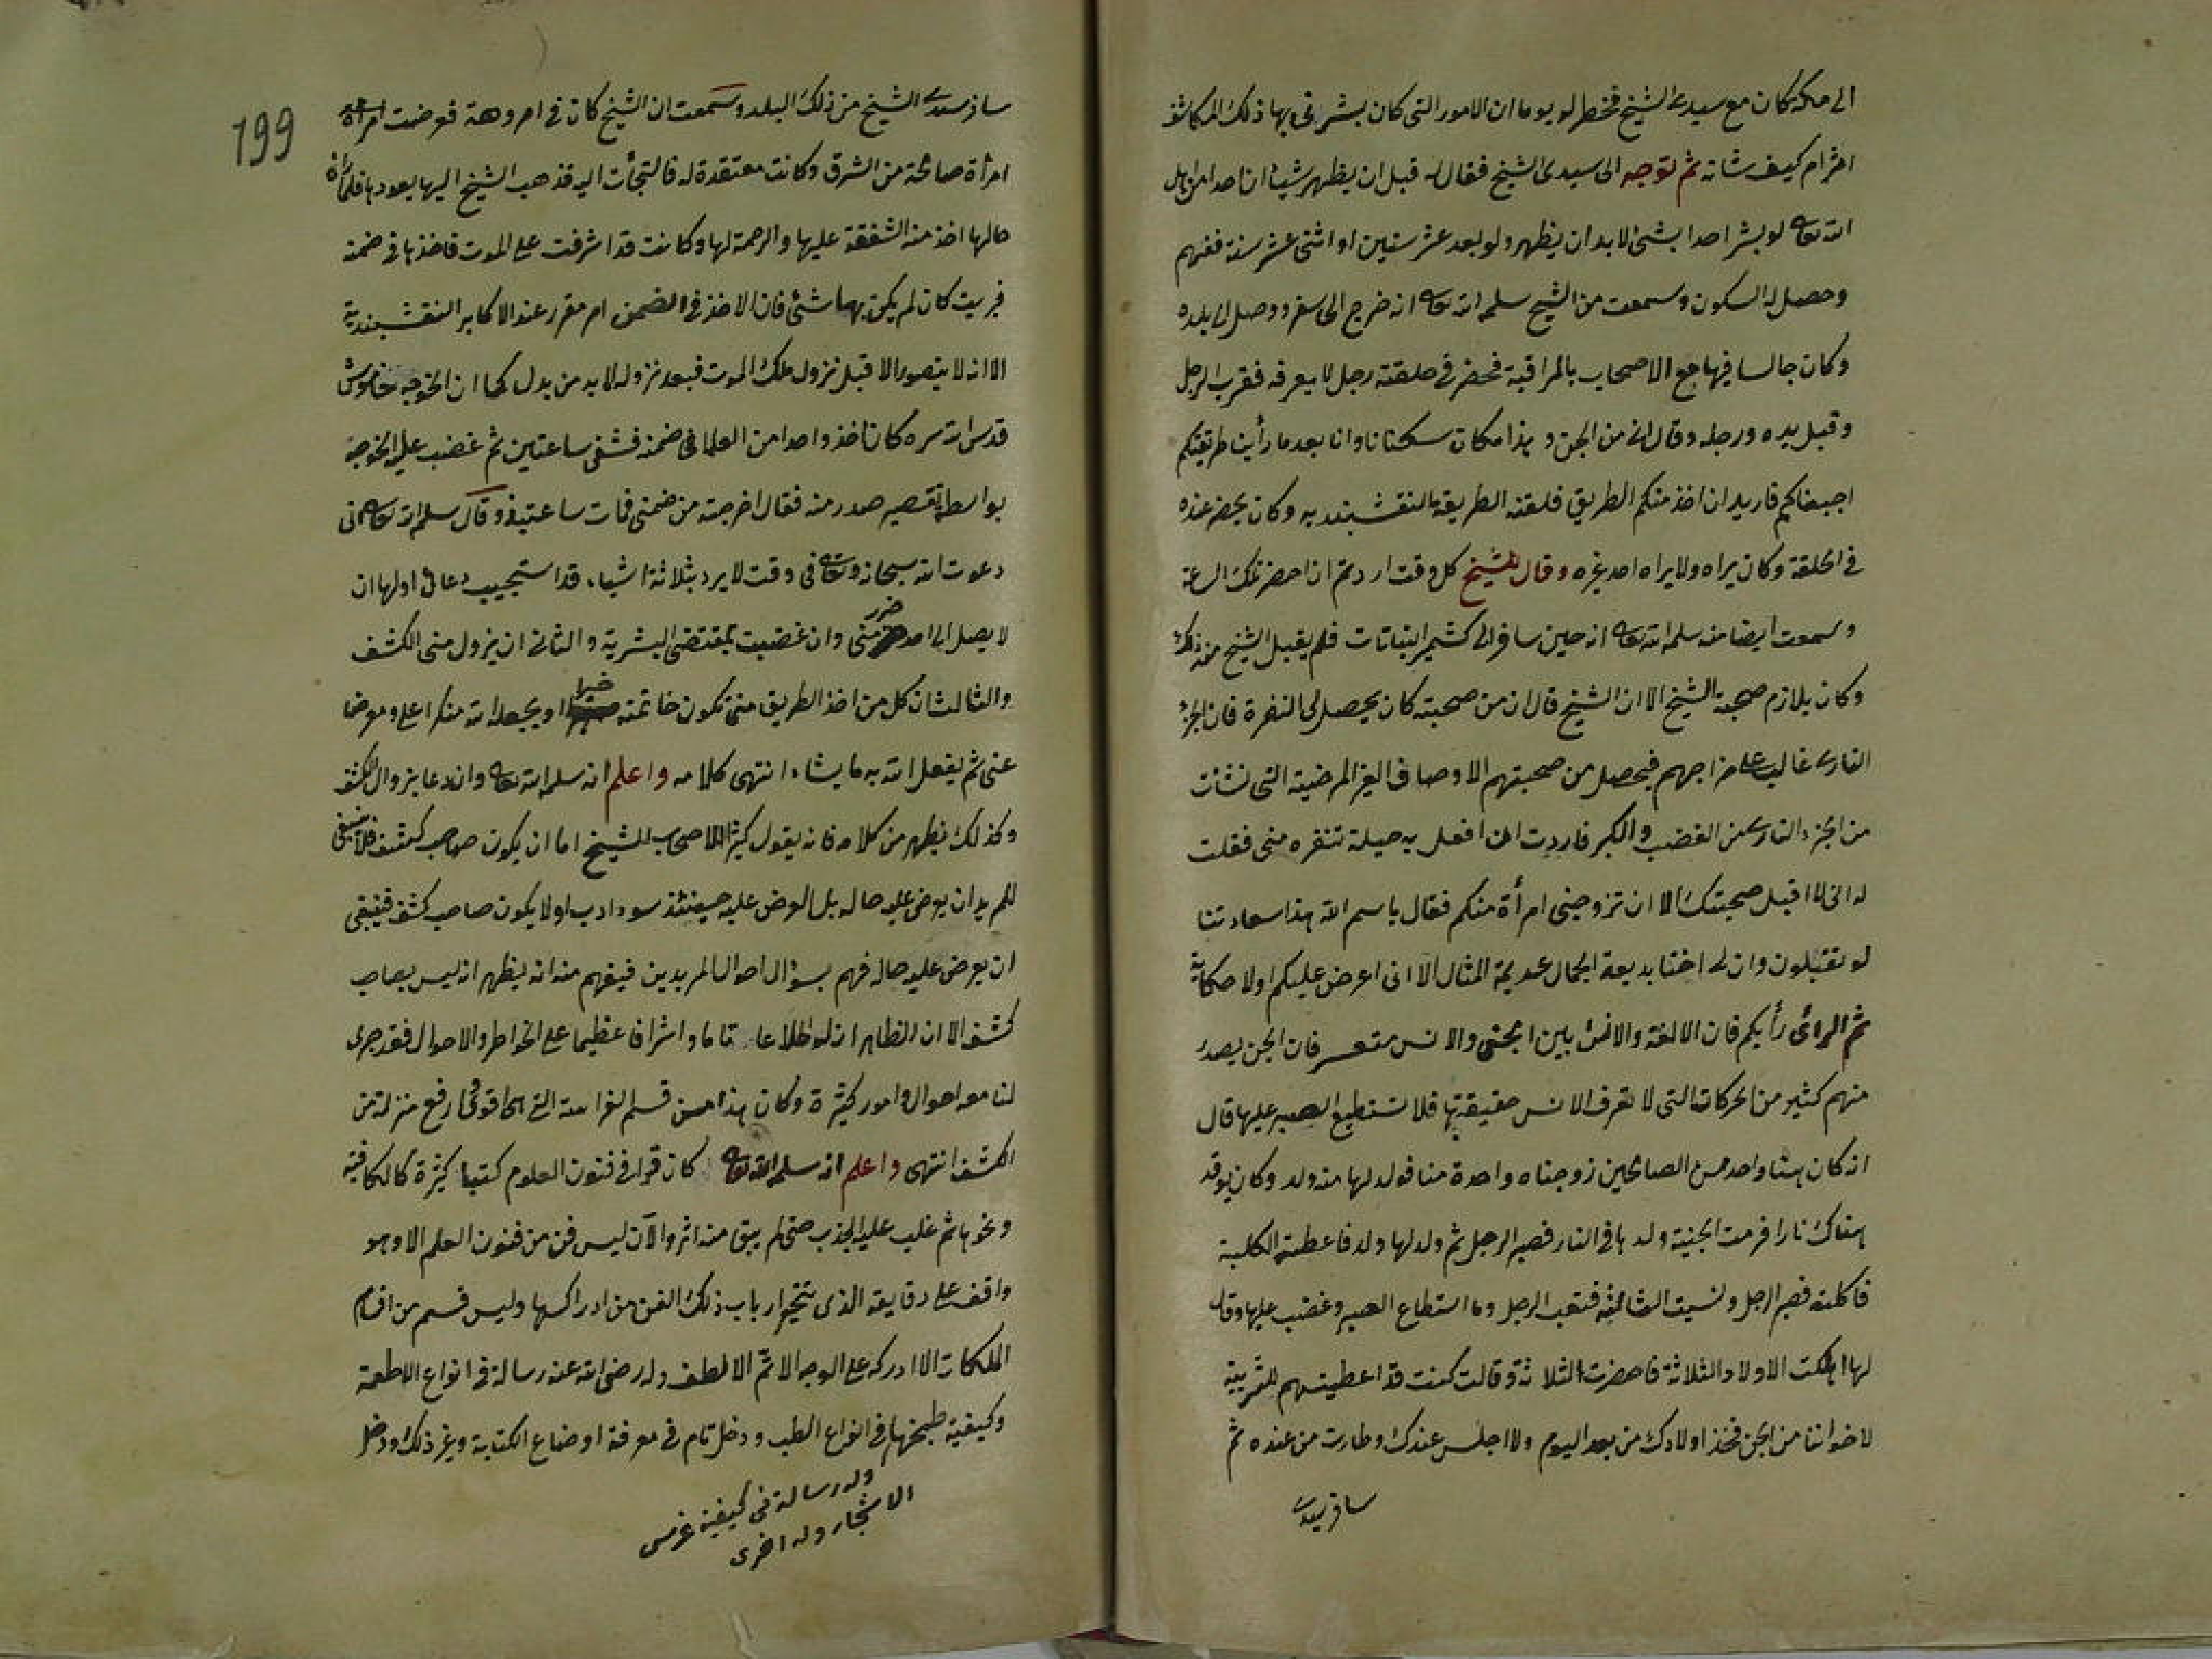 الى مكة كان مع سيدى الشيخ فخطر له يوما ان الامور التى كان بشر تحو بها ذلك المكاشف
امرام كيف شانه ثم توجه الى سيدى الشيخ فقال له قبل ان يظهر شيئا ان احدا من اهل
الله تعا لو بشر احدا بشئ لا بد ان يظهر ولو بعد عشر سنين او اثنى عشر سنة ففهم
وحصل له السكون وسمعت من الشيخ سلمه الله تعا انه خرج الى سفر ووصل الى بلده
وكان جالسا فيها مع الاصحاب بالمراقبة فحضر فى حلقته رجل لا يعرفه فقرب الرجل
وقبل يده ورجله وقال انى من الجن و هذا مكان سكنانا وانا بعد ما رأينا طريقتكم
احببناكم فاريد ان اخذ منكم الطريق فلقنه الطريقة النقشبنديه وكان يحضر عنده
فى الحلقة وكان يراه ولا يراه احد غيره وقال للشيخ كل وقت اردتم ان احضر تلك الساعة
وسمعت ايضا منه سلمه الله تعا انه حين سافر الى كشمير فلم يقبل الشيخ منه ذلك
وكان يلازم صحبة الشيخ الا ان الشيخ قال ان من صحبته كان يحصل لى النفرة فان الجزء
النارى غالب على مزاجهم فيحصل من صحبتهم الاوصاف الغير المرضية التى نشئت
من الجزء النارى من الغضب والكبر فاردت ان افعل به حيلة تنفره منى فقلت
له انى لا اقبل صحبتك الا ان تزوجنى امرأة منكم فقال باسم الله هذا سعادتنا
لو تقبلون وان لى اختا بديعة الجمال عديمة المثال الا انى اعرض عليكم اولا حكاية
ثم الرائى رأيكم فان الالفة والانس بين الجنى والانس متعسر فان الجن يصدر
منهم كثير من الحركات التى لا تعرف الانس حقيقتها فلا تستطيع الصبر عليها قال
انه كان هنا واحد من الصالحين زوجناه واحدة منا فولد لها منه ولد وكان يوقد
هناك نارا فرمت الجنية ولدها فى النار فصبر الرجل ثم ولد لها ولد فاعطته الكلبة
فاكلته فصبر الرجل ونسيت الثالثة فتعب الرجل وما استطاع الصبر وغضب عليها وقال
لها اهلكت الاولاد الثلاثة فاحضرت الثلاثة وقالت كنت قد اعطيتهم للتربية
لاخواننا من الجن فخذ اولادك من بعد اليوم ولا اجلس عندك وطارت من عنده ثم
سافر سيدى
199
سافر سيدى الشيخ من ذلك البلد وسمعت ان الشيخ كان فى امروهة فمرضت امرأة
امرأة صالحة من الشرق وكانت معتقدة له فالتجأت اليه فذهب الشيخ اليها يعودها فلما رأه
حالها اخذ منه الشفقة عليها والرحمة لها وكانت قد اشرفت على الموت فاخذها فى ضمنه
فبريت كان لم يكن بها شئ فان الاخذ فى الضمن امر مقرر عند الاكابر النقشبندية
الا انه لا يتصور الا قبل نزول ملك الموت فبعد نزوله لابد من بدل كما ان الخوجه خاموش
قدس الله سره كان اخذ واحدا من العلما فى ضمنه فشفى ساعتين ثم غضب عليه الخوجه
بواسطة تقصير صدر منه فقال اخرجته من ضمنى فمات ساعتئذ وقال سلمه الله تعا انى
دعوت الله سبحانه وتعا فى وقت لا يرد بثلاثة اشياء، قد استجيب دعائى اولها ان
لا يصل الى احد ضرر منى وان غضبت بمقتضى البشرية والثانى ان يزول منى الكشف
والثالث ان كل من اخذ الطريق منى تكون خاتمته خيرا او يجعله الله منكرا على ومعرضا
عنى ثم يفعل الله به ما يشاء انتهى كلامه واعلم انه سلمه الله تعا وان دعا بزوال الكشف
وكذلك يظهر من كلامه فانه يقول كثيرا لاصحابه الشيخ اما ان يكون صاحب كشف فلا ينبغى
للمريد ان يعرض عليه حاله بل العرض عليه حينئذ سوء ادب او لا يكون صاحب كشف فينبغى
ان يعرض عليه حاله فهم بسؤال احوال المريدين فيفهم منه انه يظهر انه ليس بصاحب
كشف الا ان الظاهر ان له اطلاعا تاما واشرافا عظيما على الخواطر والاحوال فقد جرى
لنا معه احوال وامور كثيرة وكان هذا من قسم الفراسة التى هى اقوى وارفع منزلة من
الكشف انتهى واعلم انه سلمه الله تعا كان قرأ فى فنون العلوم كتبا كثيرة كالكافية
ونحوها ثم غلب عليه الجذب حتى لم يبق منه اثر والآن ليس فن من فنون العلم الا وهو
واقف على دقايقه الذى تتحير ارباب ذلك الفن من ادراكها وليس قسم من اقسام
الملكات الا ادركه على الوجه الاتم الالطف وله رضى الله عنه رسالة فى انواع الاطعمة
وكيفية طبخها فى انواع الطب ودخل تام فى معرفة اوضاع الكتابة وغير ذلك ودخل
وله رسالة فى كيفية غرس
الاشجار وله اخرى